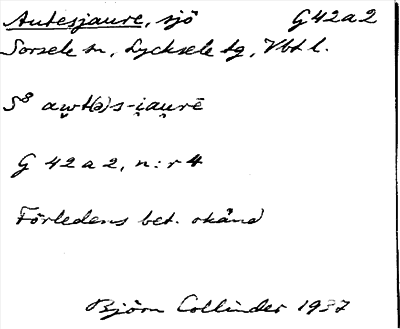 Autesjaure, sjö G42a2
Sorsele sn, Lycksele tg, Vbt l.
S8 aw̭t(ə)s-i̭au̯rē
G 42 a 2, n:r 4
Förledens bet. okänd
Björn Collinder 1937